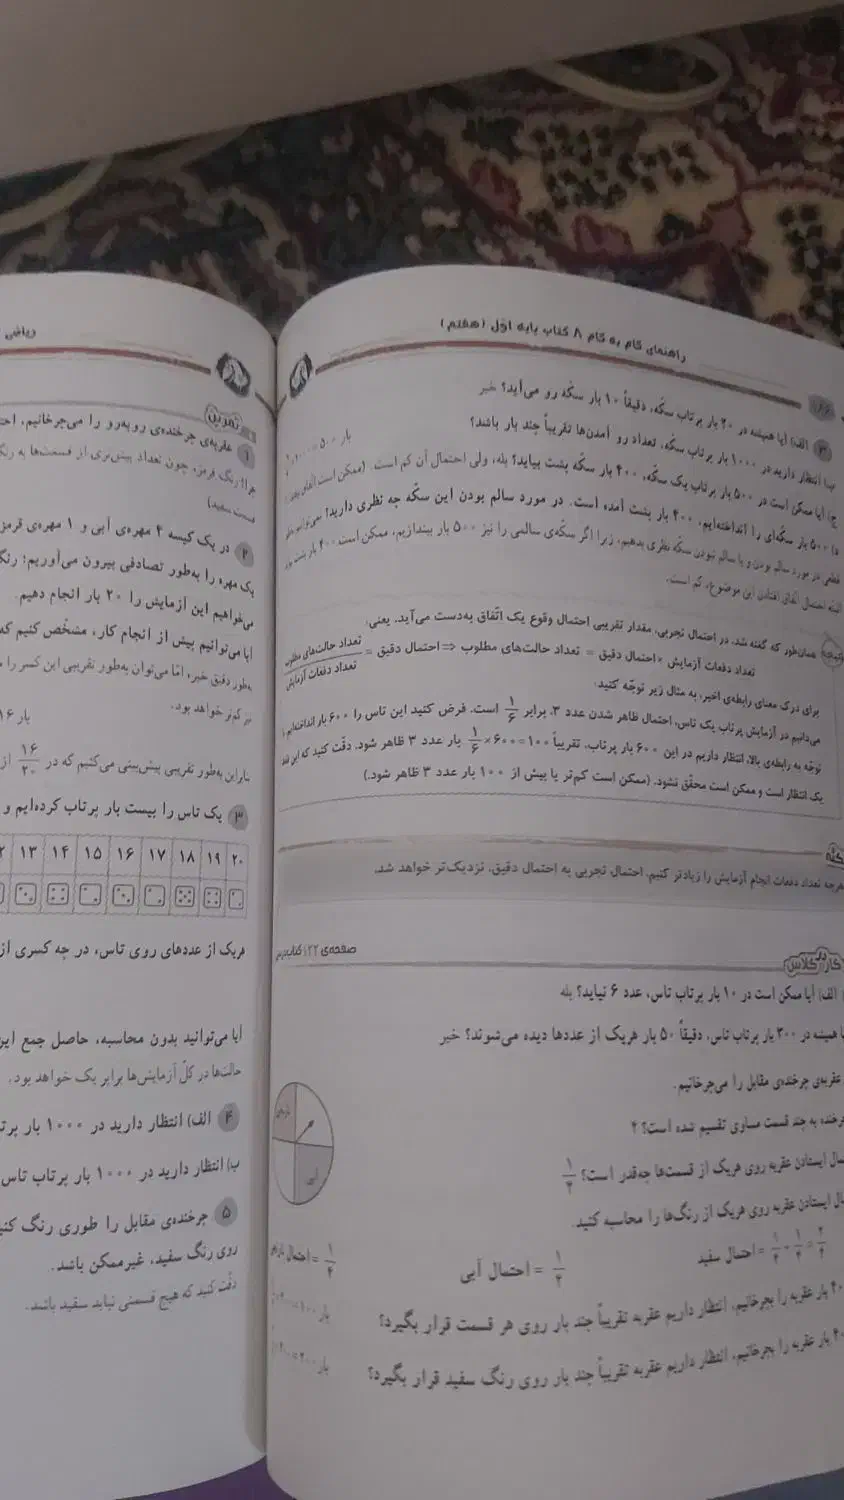 راهنمای گام به گام ۸ کتاب پایه اول (هفتم)
۳ الف) آیا همیشه در ۲۰ بار پرتاب سکّه، دقیقاً ۱۰ بار سکّه رو می‌آید؟ خیر
ب) انتظار دارید در ۱۰۰۰ بار پرتاب سکّه، تعداد رو آمدن‌ها تقریباً چند بار باشد؟
بار ۵۰۰ =
ج) آیا ممکن است در ۵۰۰ بار پرتاب یک سکّه، ۴۰۰ بار سکّه پشت بیاید؟ بله، ولی احتمال آن کم است. (ممکن است اتّفاق بیفتد
د) ۵۰۰ بار سکّه‌ای را انداخته‌ایم، ۴۰۰ بار پشت آمده است. در مورد سالم بودن این سکّه چه نظری دارید؟
قطعی در مورد سالم بودن و یا سالم نبودن سکّه نظری بدهیم، زیرا اگر سکّه‌ی سالمی را نیز ۵۰۰ بار بیندازیم، ممکن است ۴۰۰ بار پشت
البته احتمال اتّفاق افتادن این موضوع، کم است.
همان‌طور که گفته شد، در احتمال تجربی، مقدار تقریبی احتمال وقوع یک اتّفاق به‌دست می‌آید. یعنی:
تعداد دفعات آزمایش × احتمال دقیق = تعداد حالت‌های مطلوب ⇒ احتمال دقیق = تعداد حالت‌های مطلوب / تعداد دفعات آزمایش
برای درک معنای رابطه‌ی اخیر، به مثال زیر توجّه کنید.
می‌دانیم در آزمایش پرتاب یک تاس، احتمال ظاهر شدن عدد ۳، برابر ۱/۶ است. فرض کنید این تاس را ۶۰۰ بار انداخته‌ایم
توجّه به رابطه‌ی بالا، انتظار داریم در این ۶۰۰ بار پرتاب، تقریباً ۱۰۰=۶۰۰×۱/۶ بار عدد ۳ ظاهر شود. دقّت کنید که این
یک انتظار است و ممکن است محقّق نشود. (ممکن است کم‌تر یا بیش از ۱۰۰ بار عدد ۳ ظاهر شود.)
نکته
هرچه تعداد دفعات انجام آزمایش را زیادتر کنیم، احتمال تجربی به احتمال دقیق، نزدیک‌تر خواهد شد.
کار در کلاس
صفحه‌ی ۱۲۲ کتاب درسی
الف) آیا ممکن است در ۱۰ بار پرتاب تاس، عدد ۶ نیاید؟ بله
همیشه در ۳۰۰ بار پرتاب تاس، دقیقاً ۵۰ بار هریک از عددها دیده می‌شوند؟ خیر
عقربه‌ی چرخنده‌ی مقابل را می‌چرخانیم.
چرخنده به چند قسمت مساوی تقسیم شده است؟ ۴
ایستادن عقربه روی هریک از قسمت‌ها چه‌قدر است؟ ۱/۴
ایستادن عقربه روی هریک از رنگ‌ها را محاسبه کنید.
احتمال سفید = ۱/۴ + ۱/۴ = ۲/۴
احتمال آبی = ۱/۴
احتمال نارنجی = ۱/۴
آبی
بار عقربه را بچرخانیم، انتظار داریم عقربه تقریباً چند بار روی هر قسمت قرار بگیرد؟
بار ۱۰۰ =
بار عقربه را بچرخانیم، انتظار داریم عقربه تقریباً چند بار روی رنگ سفید قرار بگیرد؟
بار ۲۰۰ =
ریاضی
تمرین
۱ عقربه‌ی چرخنده‌ی روبه‌رو را می‌چرخانیم،
چرا؟ رنگ قرمز، چون تعداد بیش‌تری از قسمت‌ها به
قسمت سفید)
۲ در یک کیسه ۴ مهره‌ی آبی و ۱ مهره‌ی قرمز
یک مهره را به‌طور تصادفی بیرون می‌آوریم؛
می‌خواهیم این آزمایش را ۲۰ بار انجام دهیم.
آیا می‌توانیم پیش از انجام کار، مشخّص کنیم
به‌طور دقیق خیر، امّا می‌توان به‌طور تقریبی این کسر را
کم‌تر خواهد بود.
بار ۱۶
بنابراین به‌طور تقریبی پیش‌بینی می‌کنیم که در ۱۶/۲۰ از
۳ یک تاس را بیست بار پرتاب کرده‌ایم و
۱۳ ۱۴ ۱۵ ۱۶ ۱۷ ۱۸ ۱۹ ۲۰
هریک از عددهای روی تاس، در چه کسری از
آیا می‌توانید بدون محاسبه، حاصل جمع این
حالت‌ها در کلّ آزمایش‌ها برابر یک خواهد بود.
۴ الف) انتظار دارید در ۱۰۰۰ بار
ب) انتظار دارید در ۱۰۰۰ بار پرتاب تاس
۵ چرخنده‌ی مقابل را طوری رنگ
روی رنگ سفید، غیرممکن باشد.
دقّت کنید که هیچ قسمتی نباید سفید باشد.